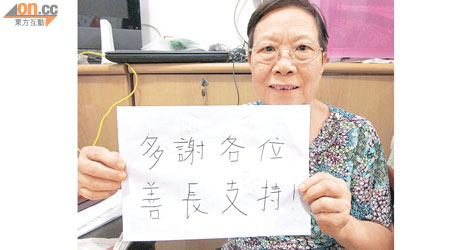 on.cc
東方互動
多謝各位
善長支持!